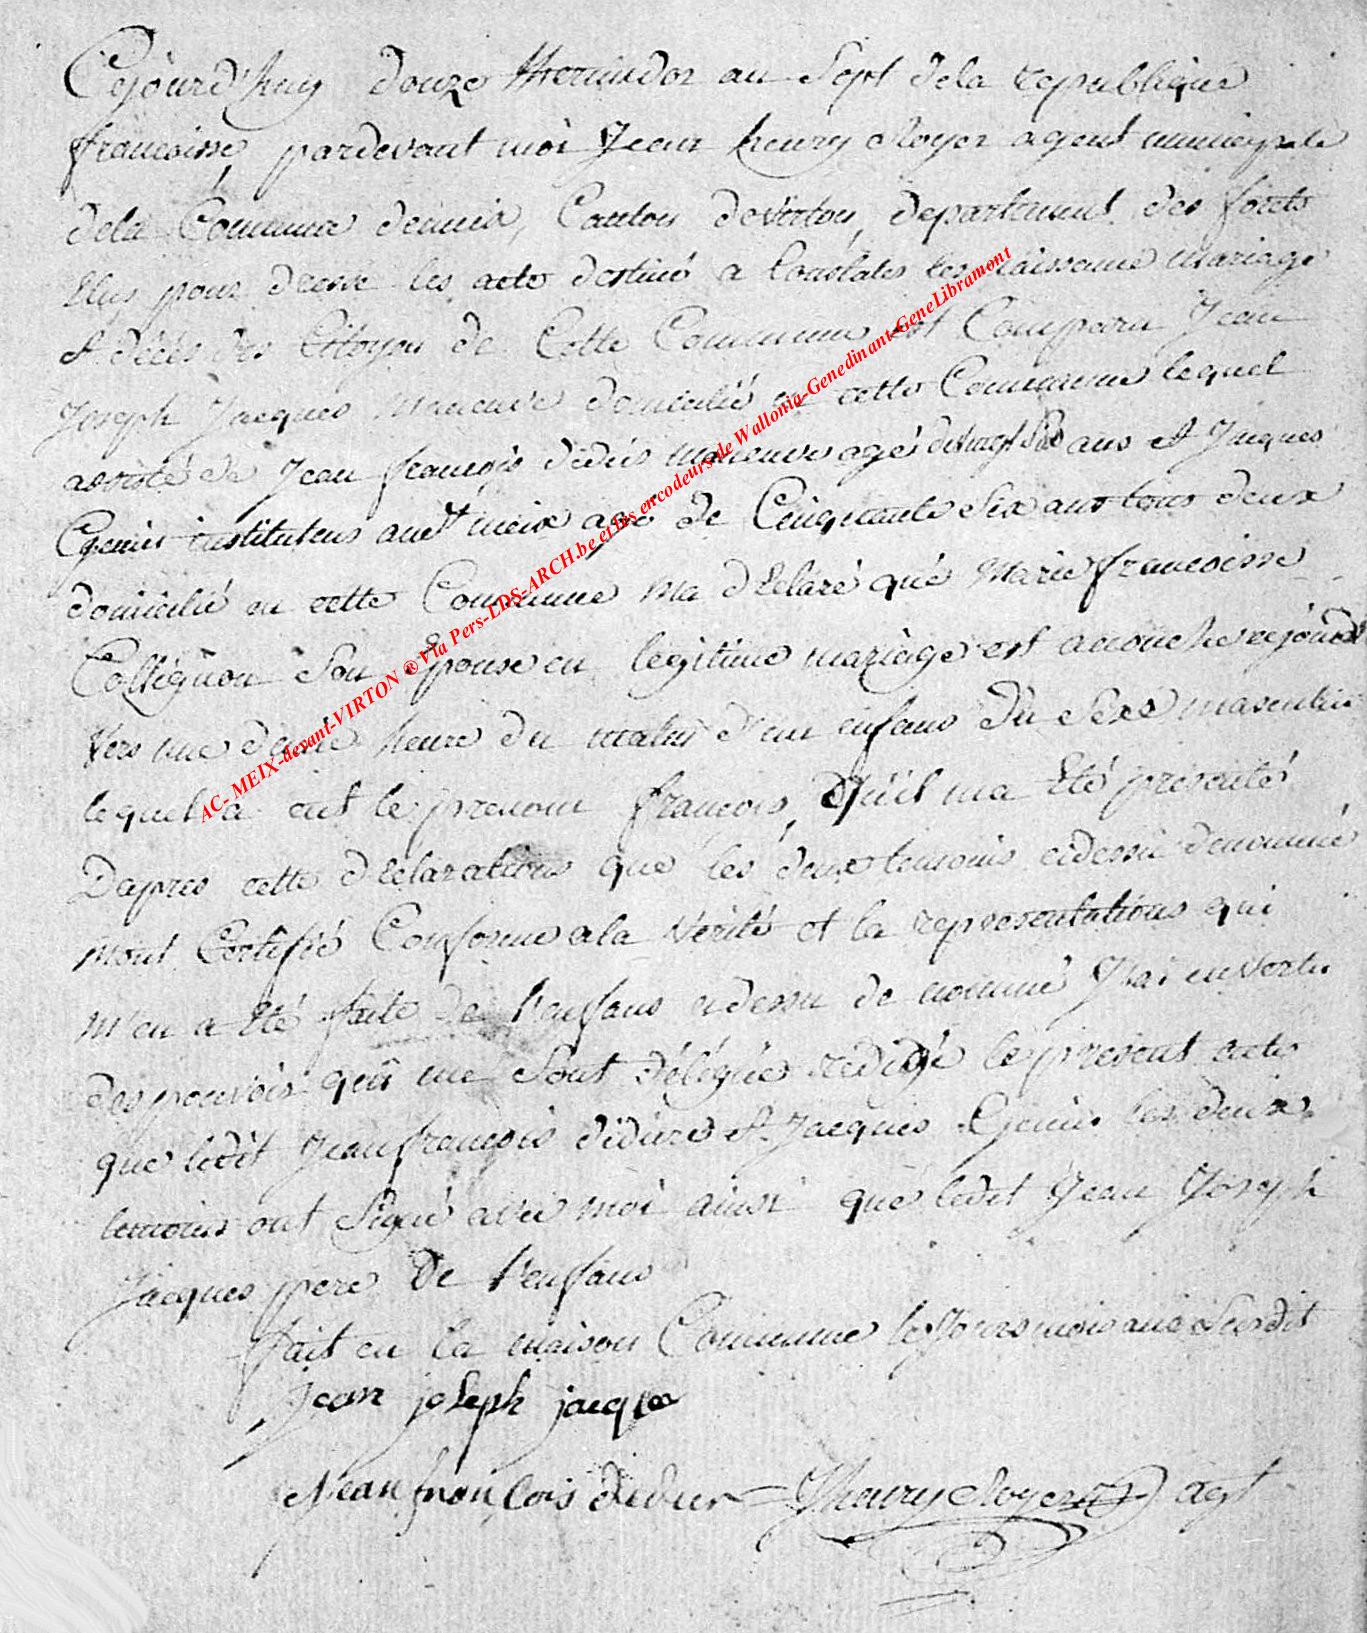 Cejourd'huy douze thermidor an Sept dela republique
francoisse, pardevant moi Jean henry Royer agent municypale
dela Commune demeix, Canton devirton, departement des forets
Elus pour dresser les acte destiné a Constater les Naissance mariage
et décès des Citoyen de Cette Commune est Comparu Jean
Joseph Jacques maneuve domicilié en cette Commune lequel
assisté de Jean francois didier maneuve agé de ans et Jacques
instituteur audt meix agé de Cinquante Six ans tous deux
domicilié en cette Commune ma déClaré qué Marie francoisse
Collignon Son Epouse en légitime mariage est acouche cejourd'
vers une demie heure du matin d'un enfans du Sexe masculin
lequel a eut le prenom francois, qu'il ma Eté présenté
Dapres cette déClarations que les deux temoins cidessu denommé
mont Certifié Conforme ala vérité et la representations qui
m'en a Eté faite de l'enfans cidessu de nommé J'ai en vertu
des pouvoir qui me Sont délégués redigé le présent acte
que ledit Jean francois didier et Jacques les deux
temoins ont Signé avec moi ainsi que ledit Jean Joseph
Jacques pere de l'enfans
fait en la maison Commune les Jours mois an Susdit
Jean joseph jacques
Jean francois didier JHenry Royer agt
AC- MEIX-devant-VIRTON ® Via Pers-LDS-ARCH.be et les encodeurs de Wallonia-Genedinant-GeneLibramont